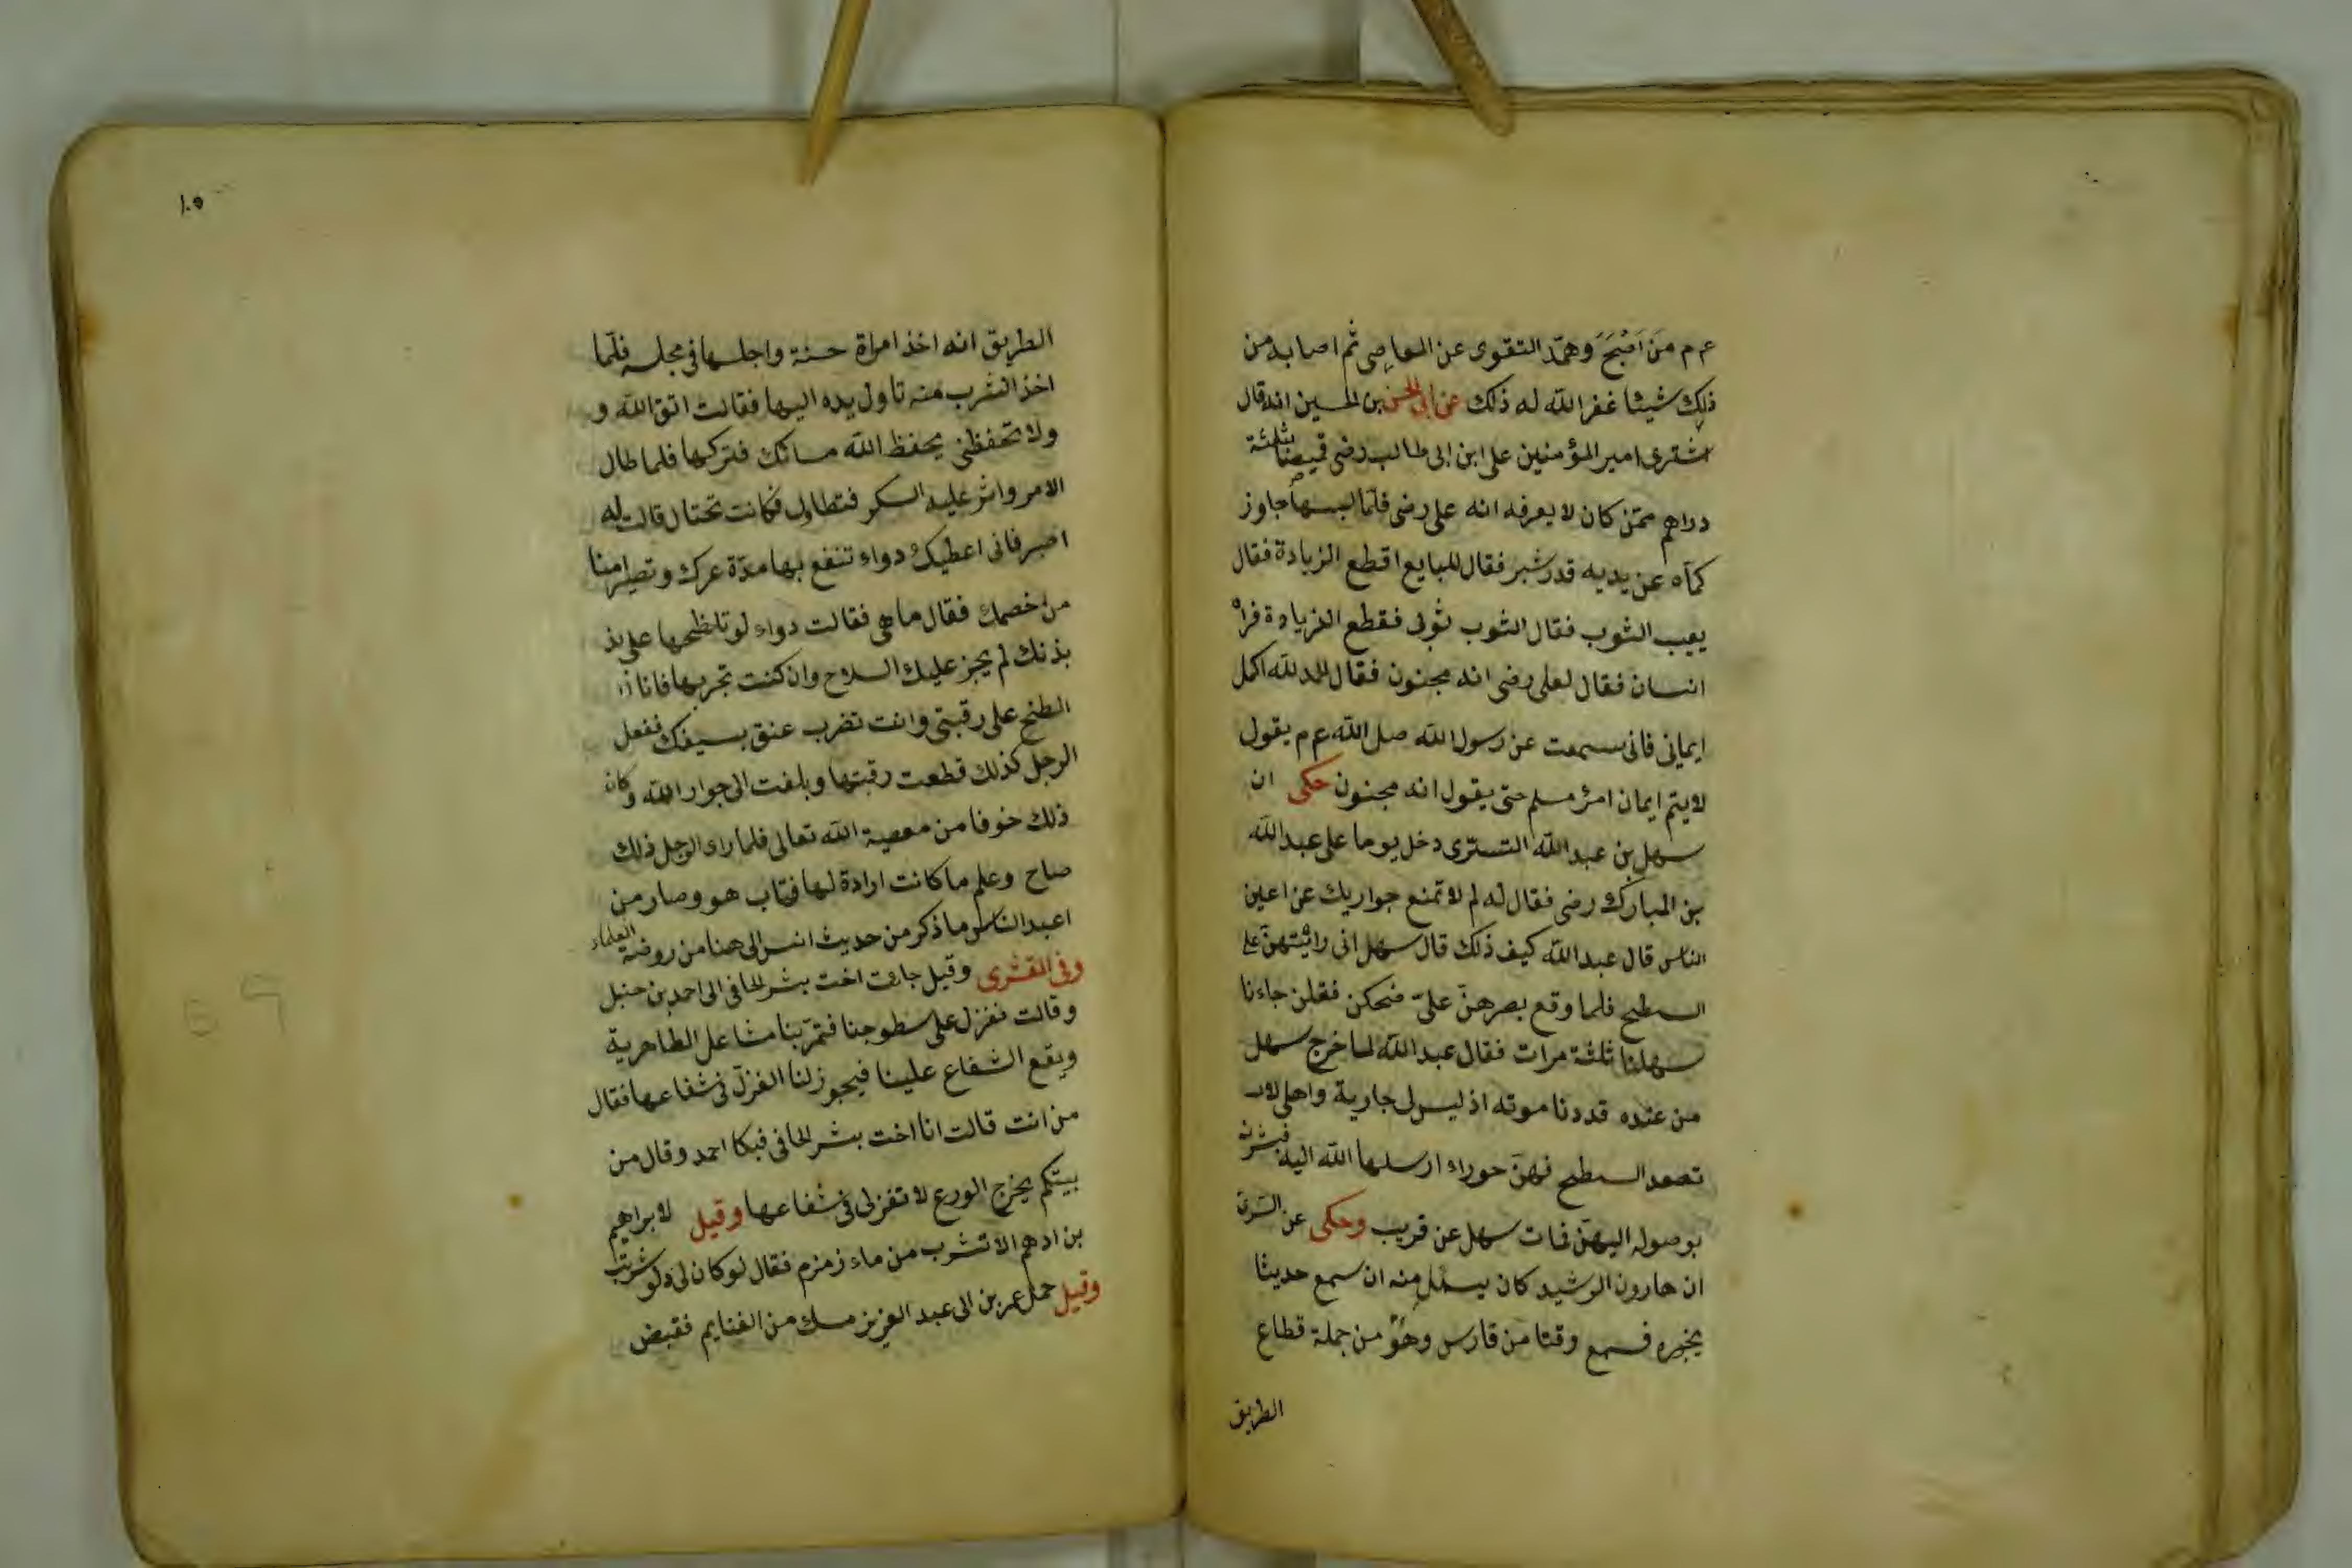 ع م من اَصْبَحَ وهمّه التقوى عن المعاصى ثم اصابه من
ذلك شيئا غفر الله له ذلك عن ابى الحسن بن الحسين انه قال
اشترى امير المؤمنين على ابن ابى طالب رضى قميصا بثلثة
دراهم ممّن كان لا يعرفه انه على رضى فلمّا لبسها جاوز
كمّاه عن يديه قدر شبر فقال للبايع اقطع الزيادة فقال
يعيب الثوب فقال الثوب ثوبى فقطع الزيادة فراه
انسان فقال لعلى رضى انه مجنون فقال الحمد لله اكمل
ايمانى فانى سمعت عن رسول الله صلى الله ع م يقول
لا يتم ايمان امرئ مسلم حتى يقول انه مجنون حكى ان
سهل بن عبد الله التسترى دخل يوما على عبد الله
بن المبارك رضى فقال له لم لا تمنع جواريك عن اعين
الناس قال عبد الله كيف ذلك قال سهل انى رائيتهنّ على
السطح فلما وقع بصرهنّ علىّ ضحكن فقلن جاءنا
سهلنا ثلثة مرات فقال عبد الله لما خرج سهل
من عنده قد دنا موته اذ ليس لى جارية واهلى لا
تصعد السطح فهنّ حوراء ارسلها الله اليه فبشرته
بوصوله اليهنّ فمات سهل عن قريب وحكى عن السرى
ان هارون الرشيد كان يسئل منه ان سمع حديثا
يخبره فسمع وقتا من فارس وهو من جملة قطاع
الطريق
١٠٥
الطريق انه اخذ امراة حسنة واجلسها فى مجلسه فلمّا
اخذ الشرب منه تاول يده اليها فقالت اتق الله و
ولا تحفظنى يحفظ الله مسائك فتركها فلما طال
الامر واثر عليه السكر فتطاول فكانت تحتال قالت له
اصبر فانى اعطيك دواء تنفع بها مدّة عمرك وتصير امنا
من خصمك فقال ما هى فقالت دواء لو تلطخها على بذ
بذنك لم يجز عليك السلاح وان كنت تجربها فانا
الطخ على رقبتى وانت تضرب عنق بسيفك ففعل
الرجل كذلك قطعت رقبتها وبلغت الى جوار الله وكان
ذلك خوفا من معصية الله تعالى فلما راء الرجل ذلك
صاح وعلم ما كانت ارادة لها فتاب هو وصار من
اعبد الناس ما ذكر من حديث انس الى هنا من روضة العلماء
وفى القشرى وقيل جائت اخت بشر الحافى الى احمد بن حنبل
وقالت نغزل على سطوحنا فتمرّ بنا مشاعل الطاهرية
ويقع الشفاع علينا فيجوز لنا الغزل فى شفاعها فقال
من انت قالت انا اخت بشر الحافى فبكا احمد وقال من
بيتكم يخرج الورع لا تغزلى فى شفاعها وقيل لابراهيم
بن ادهم الا تشرب من ماء زمزم فقال لو كان لى دلو شربت
وقيل حمل عمر بن ابى عبد العزيز مسك من الغنايم فقبض